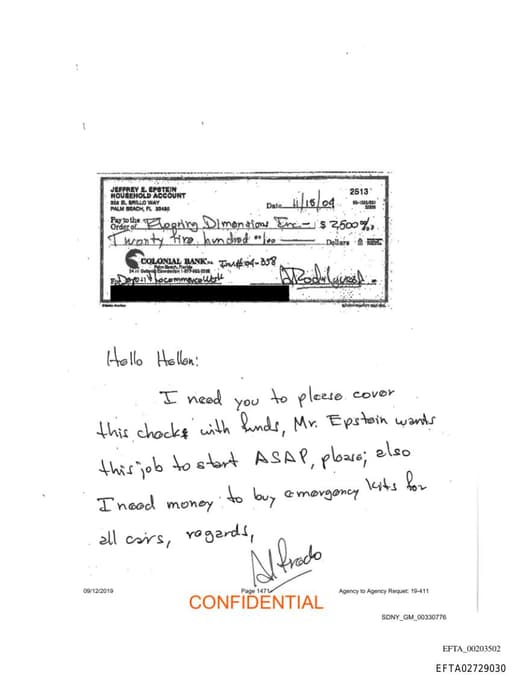 JEFFREY E. EPSTEIN
HOUSEHOLD ACCOUNT
358 EL BRILLO WAY
PALM BEACH, FL 33480
2513
Date 11/18/04
Pay to the
Order of Flooring Dimensions Inc — $ 2,500 %
Twenty five hundred 00/00 — Dollars
COLONIAL BANK
Inv# 04-358
For Deposit to commence work
ARodriguez
Hello Hellen:
I need you to please cover
this checks with funds, Mr. Epstein wants
this job to start ASAP, please; also
I need money to buy emergency kits for
all cars, regards,
Alfredo
09/12/2019
Page 1471
Agency to Agency Requet: 19-411
CONFIDENTIAL
SDNY_GM_00330776
EFTA_00203502
EFTA02729030